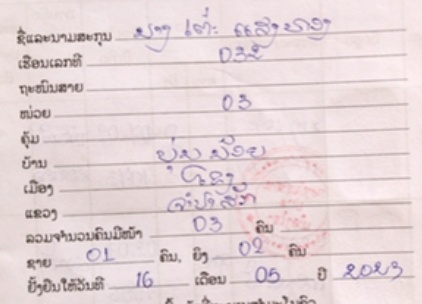 ຊື່ແລະນາມສະກຸນ ນາງ ເຕີ່ະ ແສງຫວາງ
ເຮືອນເລກທີ 032
ຖະໜົນສາຍ
ໜ່ວຍ 03
ຄຸ້ມ
ບ້ານ
ເມືອງ
ແຂວງ ຈຳປາສັກ
ລວມຈຳນວນຄົນມີໜ້າ 03 ຄົນ
ຊາຍ 01 ຄົນ, ຍິງ 02 ຄົນ
ຢັ້ງຢືນໃຫ້ວັນທີ 16 ເດືອນ 05 ປີ 2023